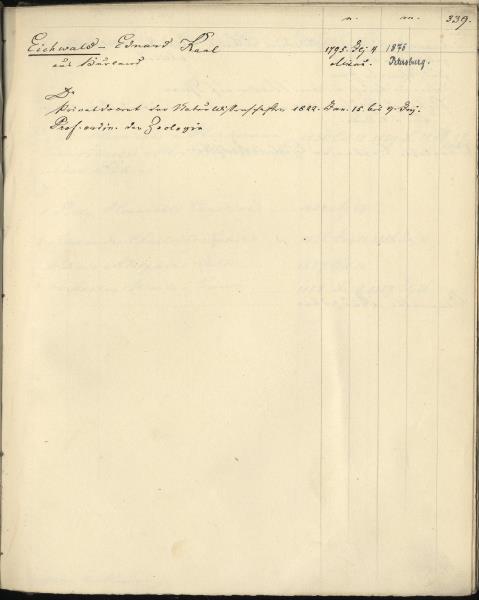 n. m. 339.
Eichwald – Eduard Karl 1795. Dez 4 1876
aus Kurland Mitau. Petersburg.
Dr
Privatdocent der Naturwissenschaften 1822. Jan. 15 bis
Prof. ordin. der Zoologie